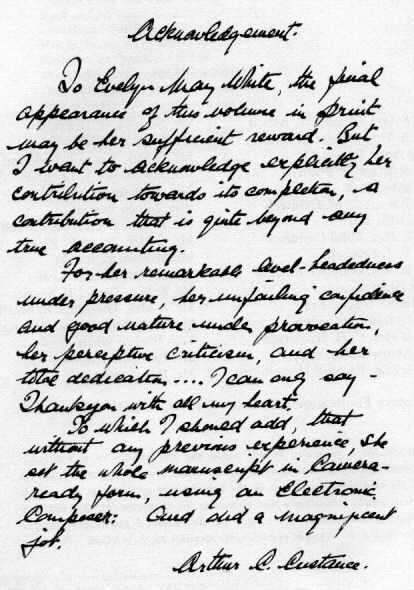 Acknowledgement.
To Evelyn May White, the final
appearance of this volume in print
may be her sufficient reward. But
I want to acknowledge explicitly her
contribution towards its completion, a
contribution that is quite beyond any
true accounting.
For her remarkable level-headedness
under pressure, her unfailing confidence
and good nature under provocation,
her perceptive criticism, and her
total dedication.... I can only say -
Thankyou with all my heart.
To which I should add, that
without any previous experience, she
set the whole manuscript in Camera-
ready form, using an Electronic
Composer: And did a magnificent
job.
Arthur C. Custance.